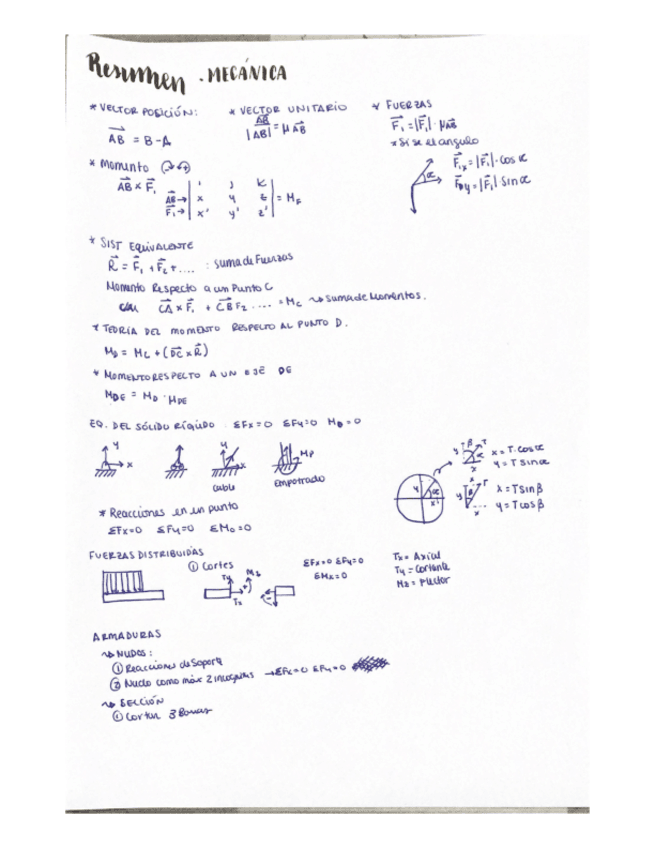 Resumen . MECÁNICA
* VECTOR POSICIÓN:
AB = B - A
* VECTOR UNITARIO
AB / |AB| = μAB
* FUERZAS
F₁ = |F₁| · μAB
* Si se el angulo
α
F₁x = |F₁| · cos α
y = |F₁| sin α
* Momento
AB x F₁
i j k
AB → x y z = M
F₁ → x' y' z'
* SIST EQUIVALENTE
R = F₁ + F₂ + .... : suma de Fuerzas
Momento Respecto a un Punto C
CA x F₁ + CB F₂ .... = Mc ~> suma de Momentos.
* TEORÍA DEL MOMENTO RESPECTO AL PUNTO D.
MD = Mc + (DC x R)
* MOMENTO RESPECTO A UN EJE DE
MDE = MD · μDE
EQ. DEL SÓLIDO RÍGIDO : ΣFx=0 ΣFy=0 MD=0
y x
y x
cable
MP
empotrado
y α x
y β T α x
x = T · cos α
y = T sin α
y β T x
x = T sin β
y = T cos β
* Reacciones en un punto
ΣFx=0 ΣFy=0 ΣMo=0
FUERZAS DISTRIBUIDAS
① Cortes
Ty Mz Tx
ΣFx=0 ΣFy=0
ΣMx=0
Tx = Axial
Ty = Cortante
Mz = Flector
ARMADURAS
~> NUDOS:
① Reacciones de Soporte
② Nudo como máx 2 incognitas → ΣFx=0 ΣFy=0
~> SECCIÓN
① Cortar 3 Barras